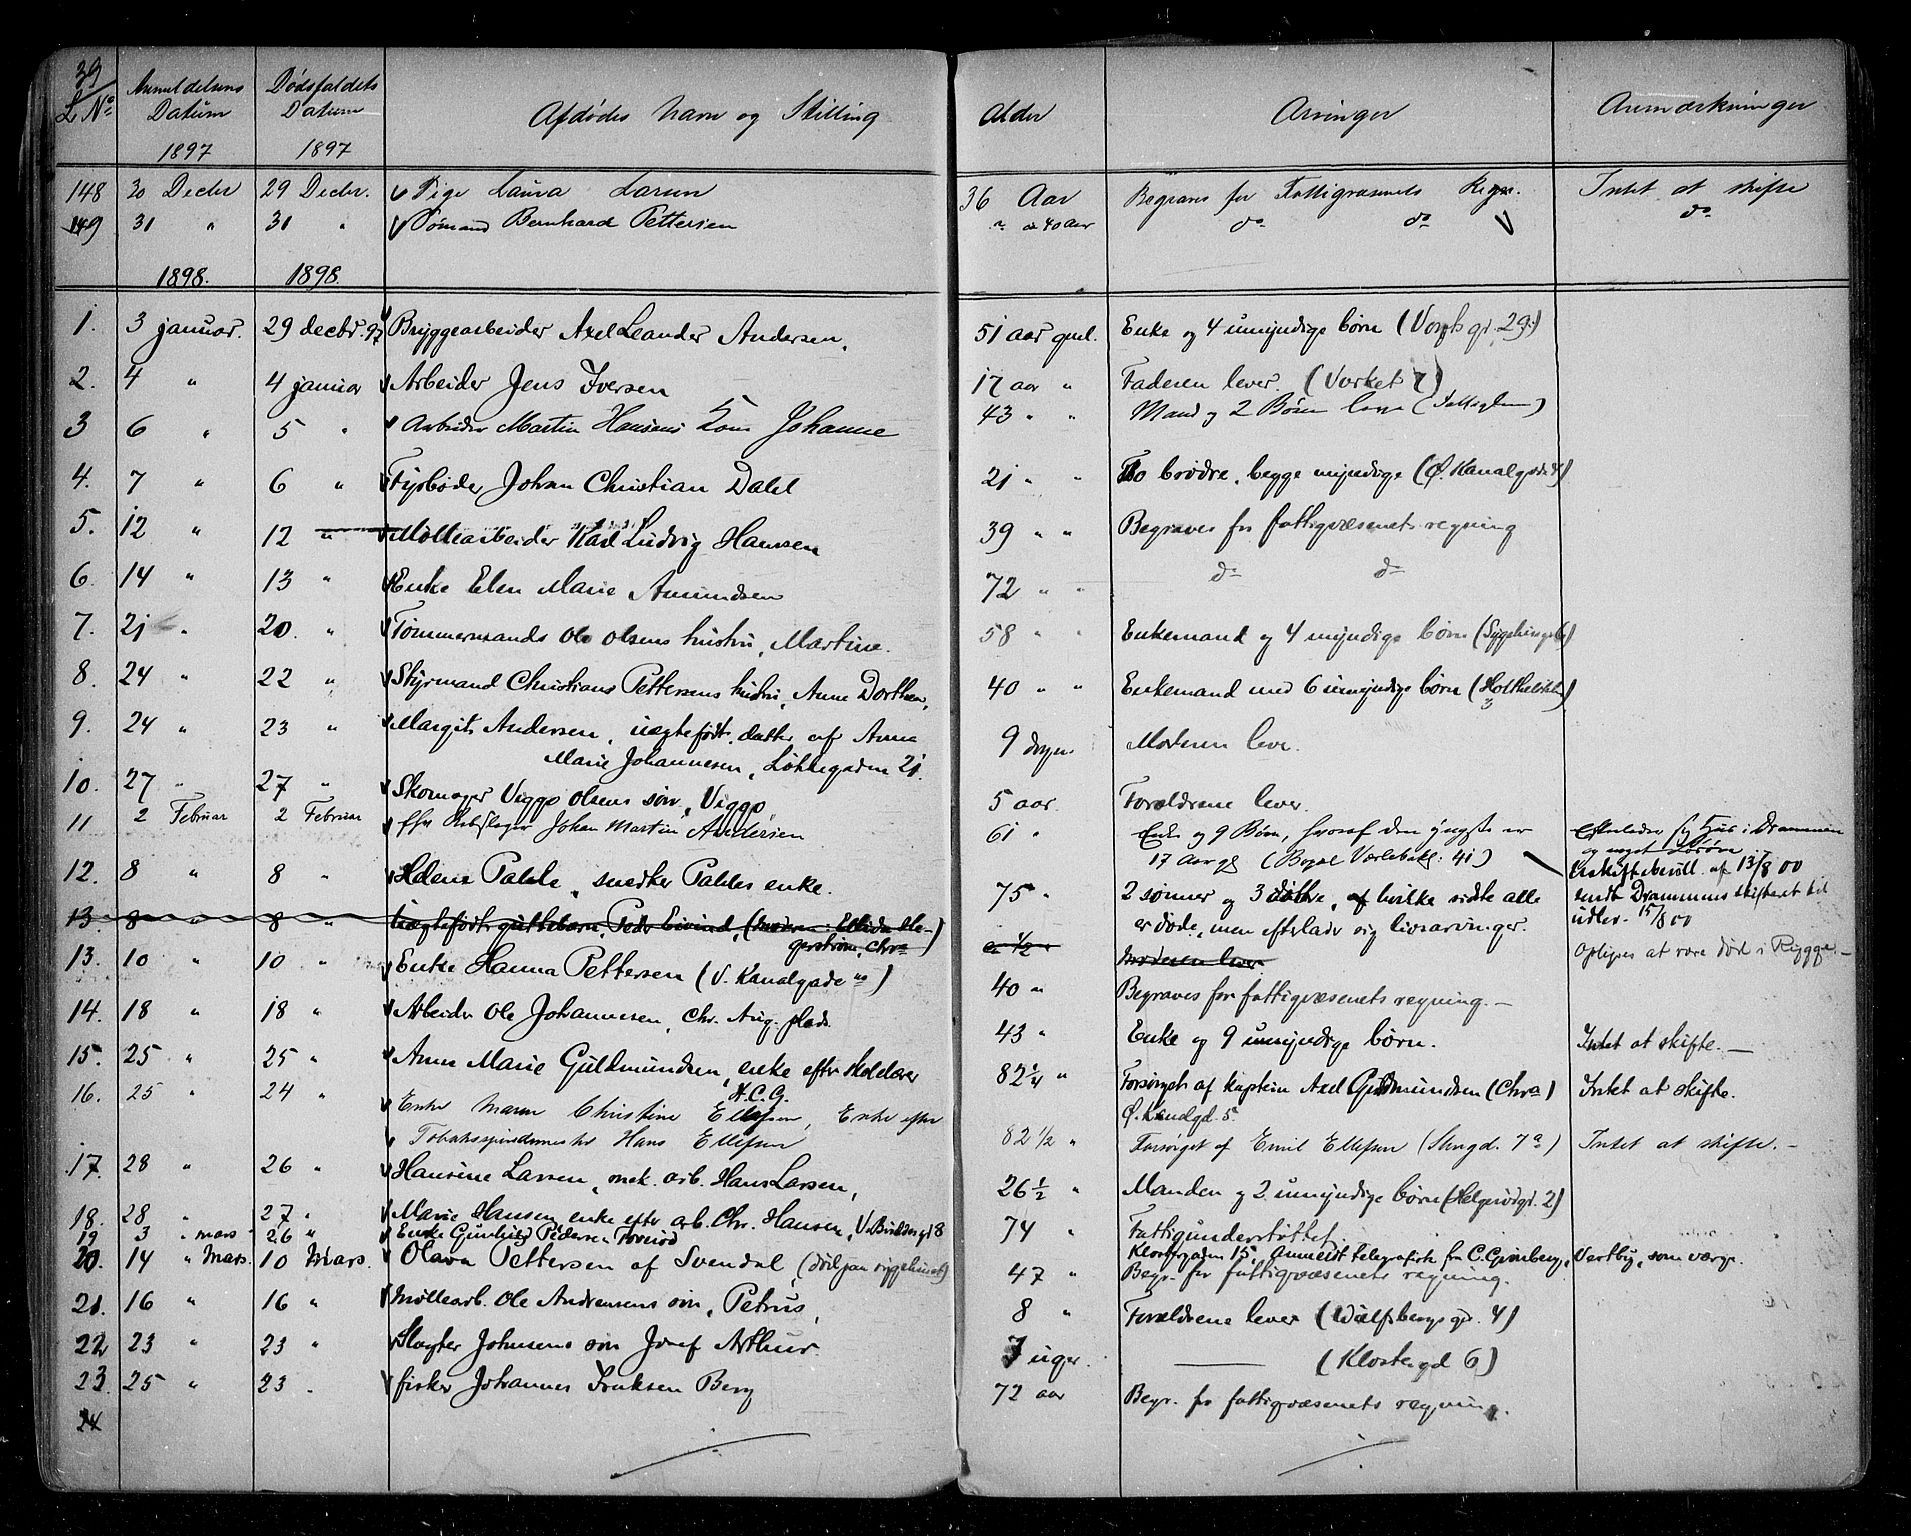 39
L. No Anmeldelsens Datum Dødsfaldets Datum Afdødes Navn og Stilling Alder Arvinger Anmærkninger
1897 1897
148 30 Decbr 29 Decbr. Pige Laura Larsen 36 Aar Begraves for Fattigvæsenets Regn. Intet at skifte
149 31 " 31 " Sømand Bernhard Pettersen 40 aar do do do
1898. 1898.
1. 3 januar. 29 decbr. 97 Bryggearbeider Axel Leander Andersen. 51 aar gml. Enke og 4 umyndige børn (Vogts gd. 29.)
2. 4 " 4 januar Arbeider Jens Iversen 17 aar " Faderen lever. (Værket 7)
3 6 " 5 " Arbeider Martin Hansens Kone Johanne 43 " " Mand og 2 Børn leve
4. 7 " 6 " Fyrbøder Johan Christian Dahl 21 " " To brødre, begge myndige (Ø. Kanalgade 4)
5. 12 " 12 " Møllearbeider Karl Ludvig Hansen 39 " " Begraves for fattigvæsenets regning
6. 14 " 13 " Enke Elen Marie Amundsen 72 " " do do
7. 21 " 20. " Tømmermands Ole Olsens hustru, Martine. 58 " " Enkemand og 4 myndige børn
8. 24 " 22 " Styrmand Christians Pettersens hustru, Anne Dorthea, 40 " " Enkemand med 6 umyndige børn
9. 24 " 23 " Margit Andersen, uægtefødt datter af Anna
Marie Johannesen, Løkkegaden 21. 9 døgn. Moderen lever.
10. 27 " 27 " Skomager Viggo Olsens søn, Viggo 5 aar. Forældrene lever.
11 2 Februar 2 Februar fhv Johan Martin Andersen 61 " Enke og 9 Børn, hvoraf den yngste er Efterlader sig Hus i Drammen
17 Aar gl og noget Løsøre
12. 8 " 8 " Helene Pahle, snedker Pahles enke. 75 " 2 sønner og 3 døtre, af hvilke sidste alle Uskiftebevill. af 13/8 00
er døde, men efterlader sig livsarvinger. sendt Drammens skifteret til
udlev. 15/8 00
13. 8 " 8 " Uægtefødt guttebarn Peder Eivind, (moderen Ellida He-
gerstrøm, Chra) 1/2 Moderen lever. Oplyses at være død i Rygge.
13. 10 " 10 " Enke Hanna Pettersen (V. Kanalgade 10) 40 " Begraves for fattigvæsenets regning.
14. 18 " 18 " Arbeider Ole Johannesen, Chr. Aug. plads 43 " Enke og 9 umyndige børn. Intet at skifte.
15. 25 " 25 " Anne Marie Guldmundsen, enke efter 82 1/4 " Forsørget af kaptein Axel Guldmundsen (Chra) Intet at skifte.
Ø. Kanalgd. 5.
16. 25 " 24 " Enke Maren Christine Ellefsen, Enke efter
Tobaksspindermester Hans Ellefsen 82 1/2 " Forsørget af Emil Ellefsen (Stengd. 7a) Intet at skifte.
17. 28 " 26 " Hansine Larsen, mek. arb. Hans Larsen, 26 1/2 " Manden og 2 umyndige børn (Helgerødgd. 2)
18. 28 " 27 " Marie Hansen, enke efter arb. Chr. Hansen, 74 " Fattigunderstøttet.
19 3 mars 26 " Enke Gunhild Pedersen Klostergaden 15, Anmeldt telegrafisk fra C. Grønberg, Vestby, som værge.
20. 14 " Mars. 10 Mars. Olava Pettersen af Svendal, (død paa sygehuset) 47 " Begr. for fattigvæsenets regning.
21. 16 " 16 " Møllearb. Ole Andreasens søn, Petrus, 8 " Forældrene lever (Wulfsbergs gd. 4)
22 23 " 23 " Slagter Johnsens søn Josef Arthur. 7 uger. (Klostergd 6)
23. 25 " 23 . fisker Johannes Isaksen Berg 72 aar Begr. for fattigvæsenets regning.
24